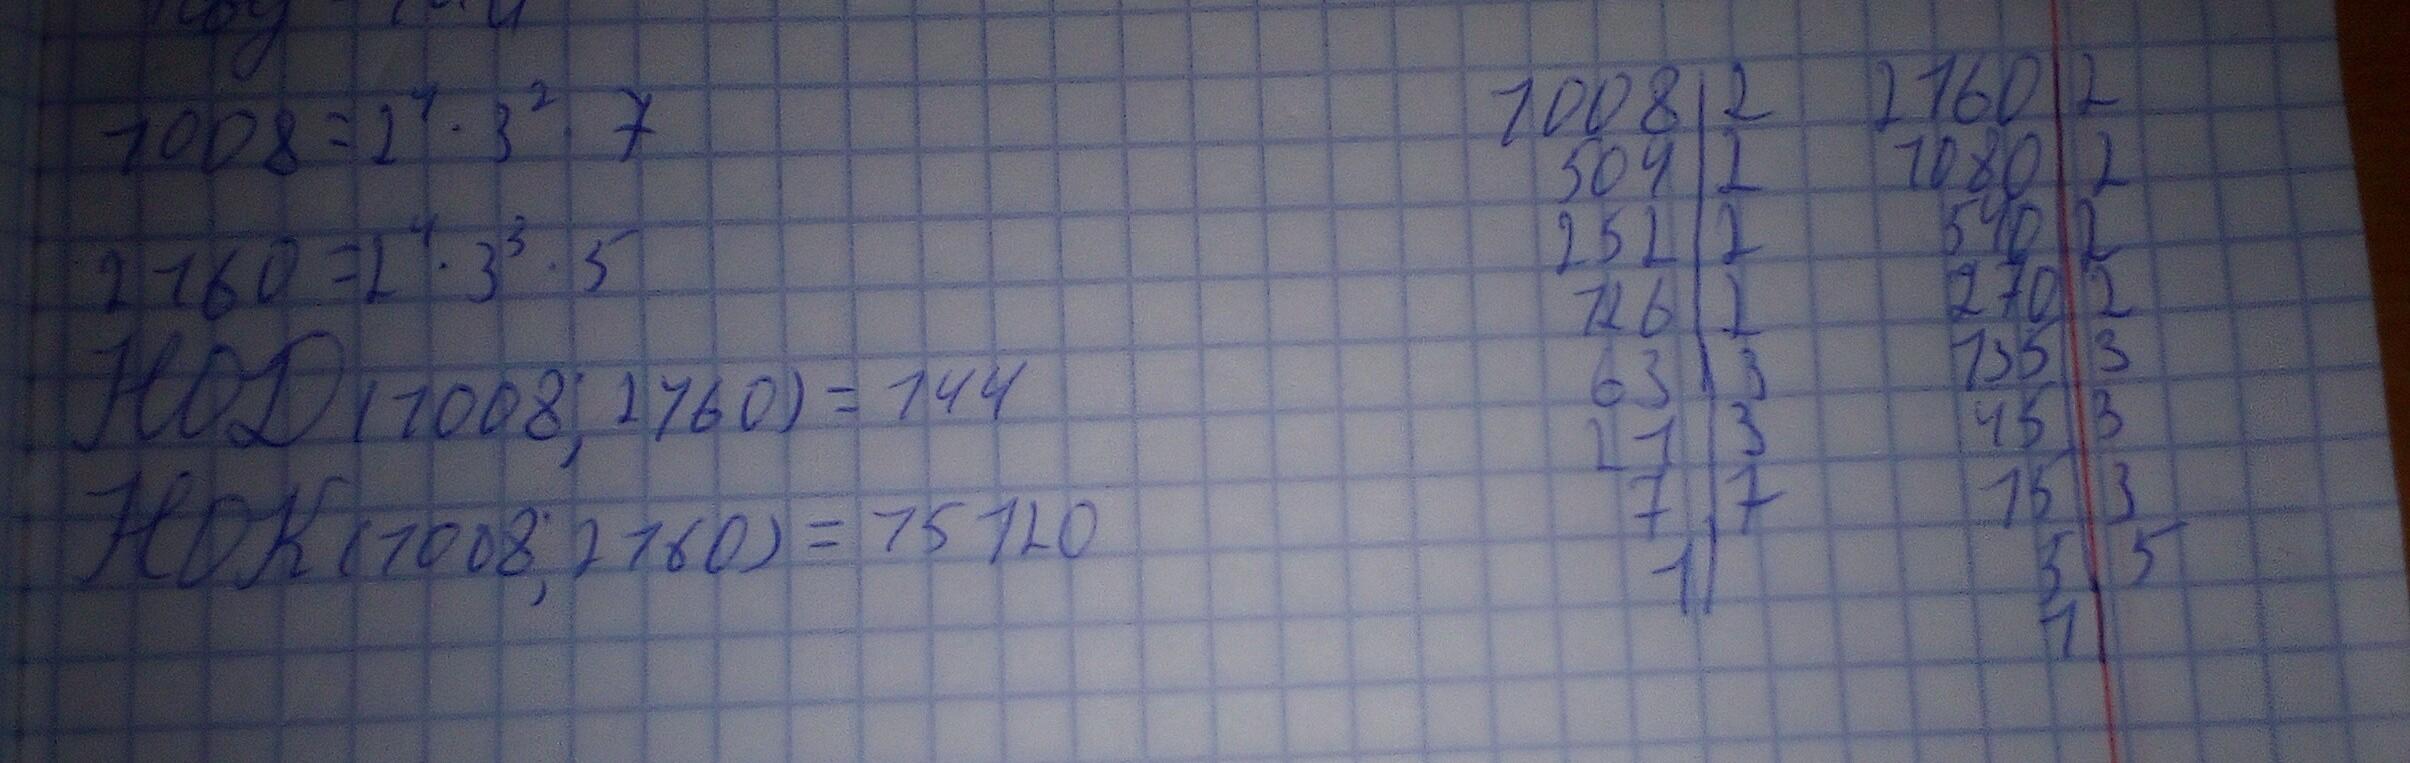 1008 = 2⁴ · 3² · 7
2160 = 2⁴ · 3³ · 5
НОД (1008; 2160) = 144
НОК (1008; 2160) = 15120
1008 | 2
504 | 2
252 | 2
126 | 2
63 | 3
21 | 3
7 | 7
1 |
2160 | 2
1080 | 2
540 | 2
270 | 2
135 | 3
45 | 3
15 | 3
5 | 5
1